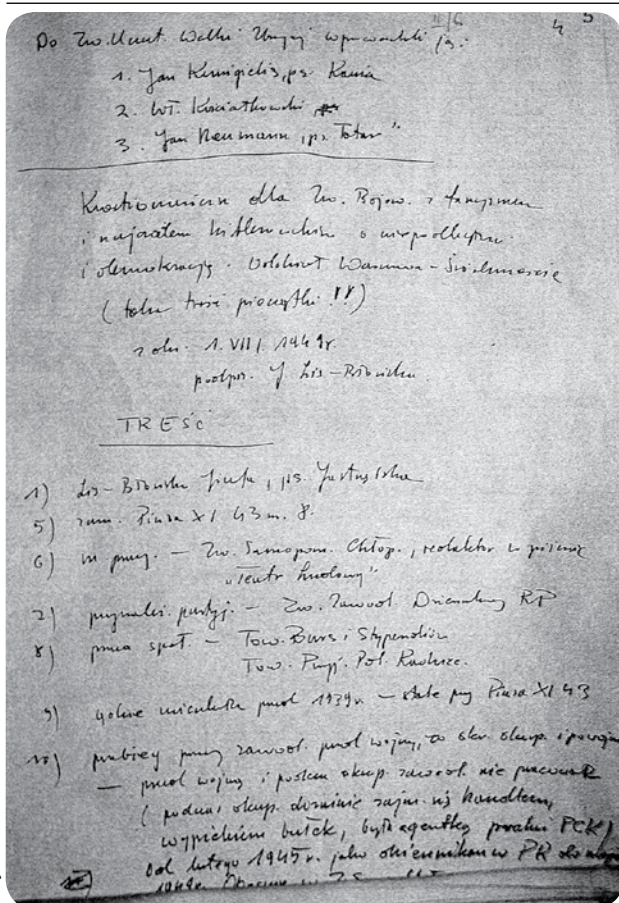 II/6 4 5
Do Zw. Uczest. Walki Zbrojnej wprowadzili ją:
1. Jan
2. Wł. Kwiatkowski
3. Jan Neumann, ps. Tatar"
dla Zw. Bojow. z faszyzmem
i najazdem hitlerowskim o niepodległość
i demokrację. Oddział Warszawa-Śródmieście
(taka treść pieczątki!!)
z dn. 1. VIII. 1949r.
podpis. J.
TREŚĆ
1) ps.
5) zam. Piusa XI 43 m. 8.
6) m. pracy. — Zw. Samopom. Chłop., redaktor w piśmie
"Teatr Ludowy"
7) przynależ. partyj. — Zw. Zawod. Dziennikarzy RP
8) praca społ. — Tow. Burs i Stypendiów
Tow. Przyj. Pol. Radziec.
9) gdzie mieszkała przed 1939r. — stale przy Piusa XI 43
10) przebieg pracy zawod. przed wojną, w okr. okup. i
— przed wojną i podczas okup. zawod. nie pracowała
(podczas okup. dorywczo zajm. się handlem,
wypiekiem bułek, była agentką pralni PCK)
Od lutego 1945 r. jako w PR do maja
1949r. Obecnie w